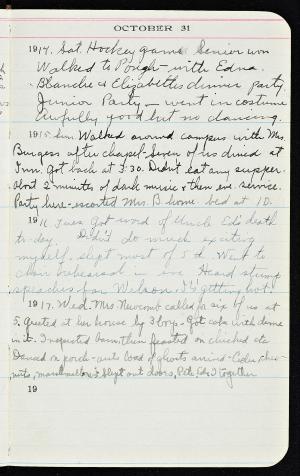 OCTOBER 31
1914. Sat. Hockey game Senior won
Walked to Po'keep with Edna.
Blanche & Elizabeth's dinner party
Junior Party — went in costume
Awfully good but no dancing.
1915 Sun. Walked around campus with Mrs.
Burgess after chapel. Seven of us dined at
Inn. Got back at 3.30. Didn't eat any supper.
About 2 minutes of dark music & then eve. service.
Party here - escorted Mrs. B home bed at 10.
1916 Tues Got word of Uncle Ed's death
to-day. Didn't do much exciting
myself, slept most of it. Went to
choir rehearsal in eve. Heard stump
speaches for Wilson. It's getting hot!
1917. Wed. Mrs Newcomb called for six of us at
5. Greeted at her house by 3 boys - Got cake with dime
in it. Inspected barn, then feasted on chicken etc
Danced on porch - auto load of ghosts arrived - Cider, chest-
nuts, marshmellows. Slept out doors, Pete, Eds I together
19